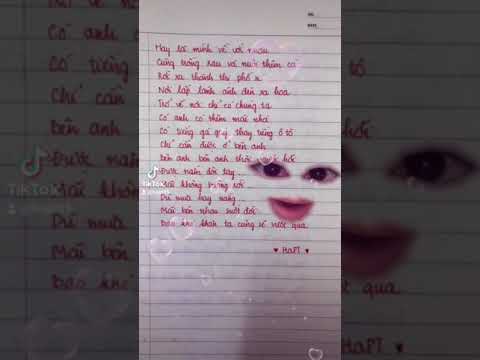 NO.
DATE
Hay mình về với nhau
Cùng trồng rau và nuôi thêm cá
Rời xa thành thị phố x
Nơi lấp lánh ánh đèn xa hoa
Trở về nơi chỉ có chúng ta
Có anh có thêm mái nhà
Có tiếng gà gáy thay tiếng ô tô
Chỉ cần được ở bên anh
Bên anh bên anh thôi hỡi
Được nắm đôi tay...
Mãi không buông rời...
Dù mưa hay nắng...
Mãi bên nhau một đời
Bao khó khăn ta cùng sẽ vượt qua
♥ HaPT ♥
TikTok